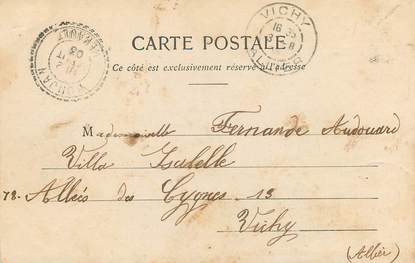 CARTE POSTALE
Ce côté est exclusivement réservé à l'adresse
VICHY
ALLIER
Mademoiselle Fernande Audouard
Villa Isabelle
78 - Allées des Cygnes - 13
Vichy
(Allier)